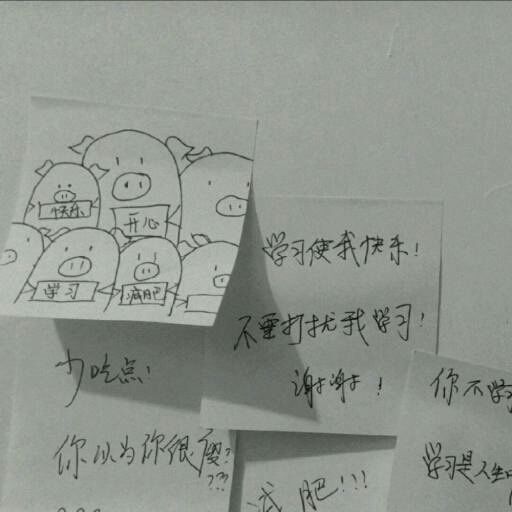 快乐
开心
学习
减肥
学习使我快乐！
不要打扰我学习！
谢谢！
少吃点！
你以为你很瘦？
???
减肥！！！
你不学
学习是人生